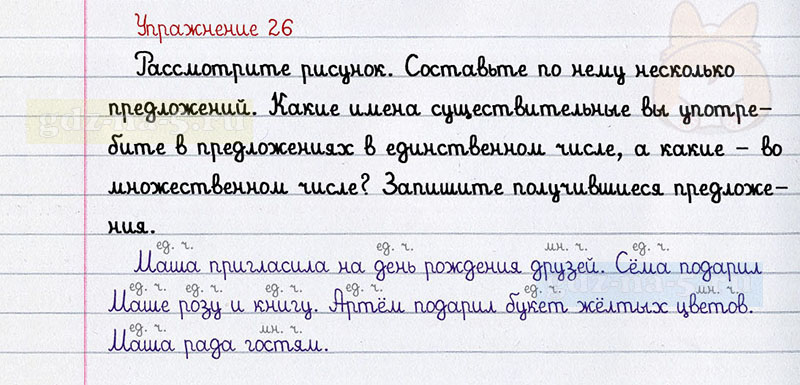 Упражнение 26
Рассмотрите рисунок. Составьте по нему несколько
предложений. Какие имена существительные вы употре-
бите в предложениях в единственном числе, а какие - во
множественном числе? Запишите получившиеся предложе-
ния.
ед. ч. ед. ч. мн. ч. ед. ч.
Маша пригласила на день рождения друзей. Сёма подарил
ед. ч. ед. ч. ед. ч. ед. ч. ед. ч. мн. ч.
Маше розу и книгу. Артём подарил букет жёлтых цветов.
ед. ч. мн. ч.
Маша рада гостям.